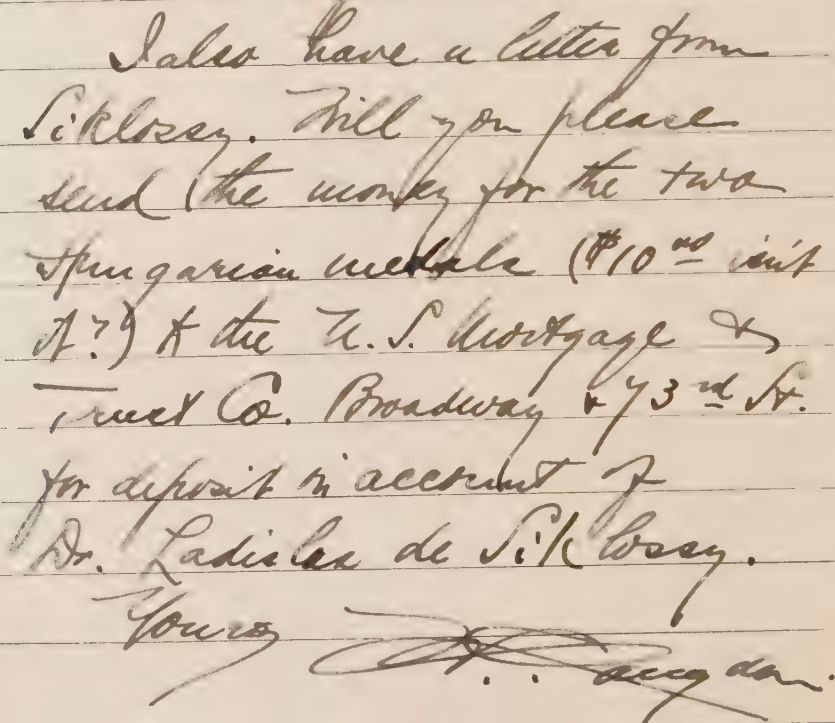 I also have a letter from
Siklossy. Will you please
send the money for the two
Hungarian medals ($10 00 isn't
it?) to the U.S. Mortgage &
Trust Co. Broadway & 73rd St.
for deposit in account of
Dr. Ladislas de Siklossy.
Yours